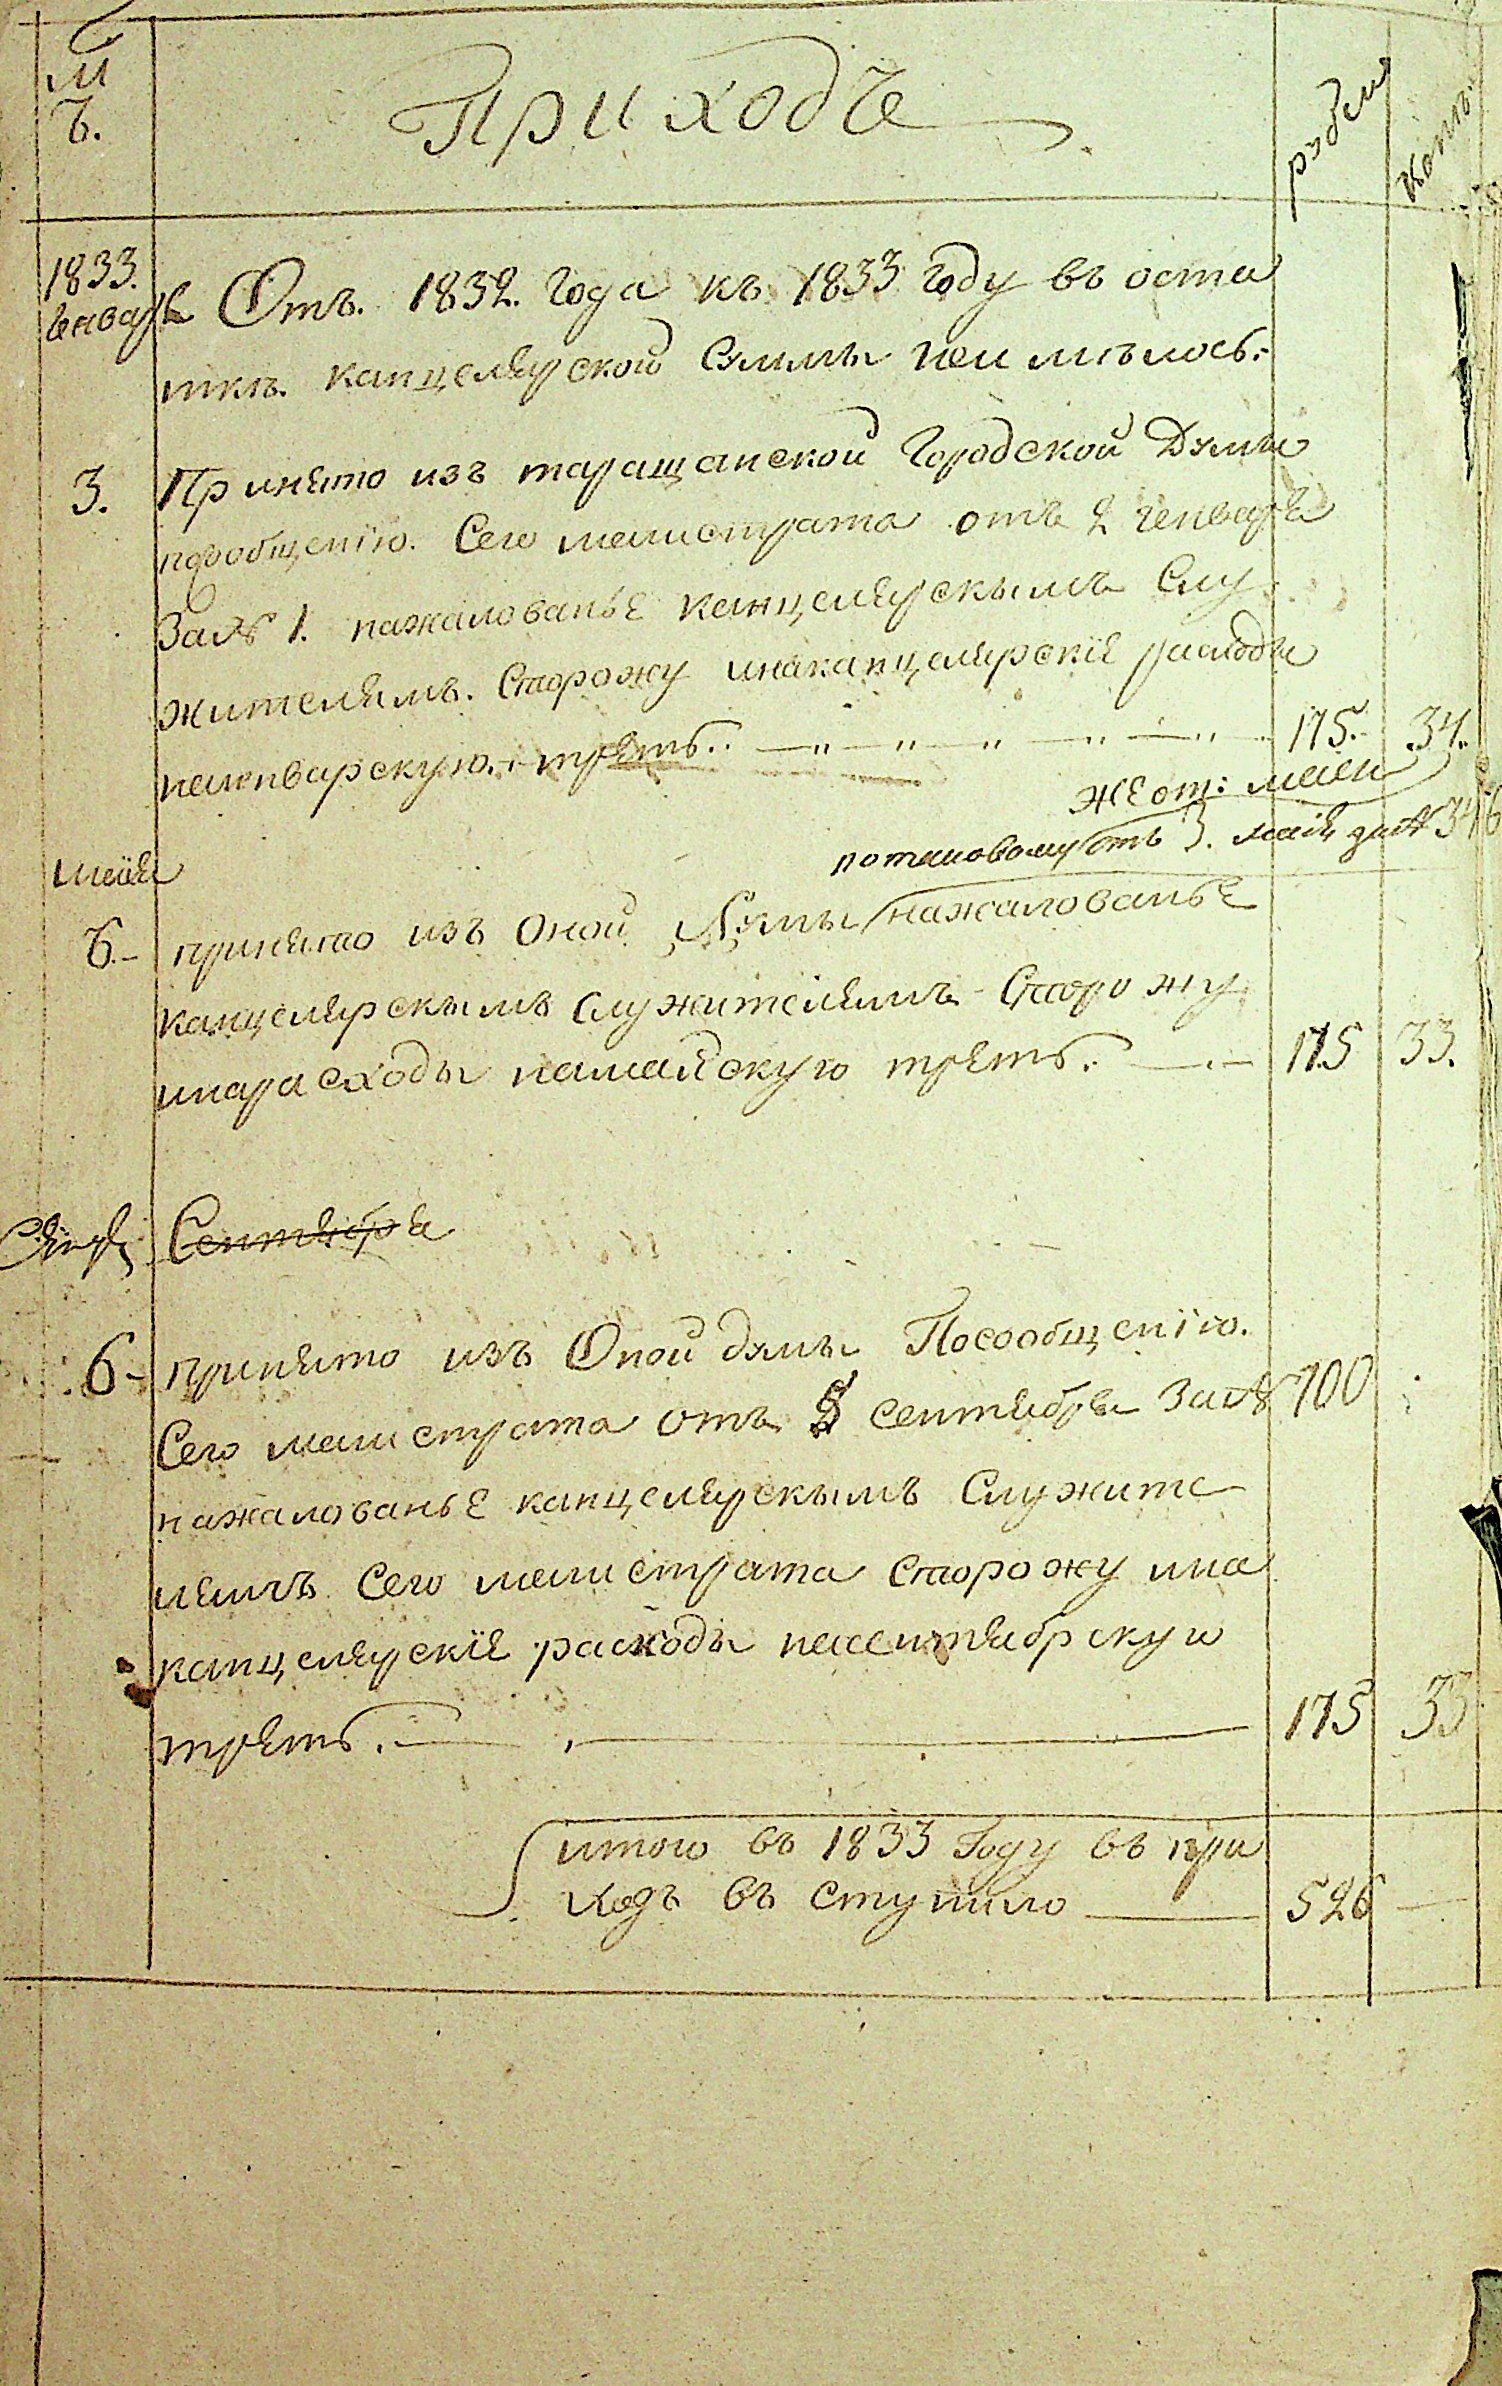 М
ъ.
Приходъ
рубли
копѣ:
1833.
Генваря
Отъ. 1832. Года къ 1833 году въ оста
ткѣ. канцелярской Суммы неимѣлось.-
3.
Принято изъ таращанской Городской Думы
посообщенїю. Сего магистрата отъ 2 генваря
За № 1. нажалованье канцелярскымъ Слу
жителямъ. Сторожу инаканцелярскїе расходы
нагенварскую. треть..
175.
34.
же от: маги
потаковому отъ 3. маїя за № 346
маїя
6.-
принято изъ Оной Думы нажалованье
канцелярскымъ Служителямъ Сторожу
инарасходы намайскую треть.
175
33.
Сентября
6-
принято изъ Оной думы Посообщенїю.
Сего магистрата отъ 5 сентября За № 700
нажалованье канцелярскымъ Служите
лямъ Сего магистрата Сторожу ина
канцелярскїе расходы насентябрскую
треть.
175
33
итого въ 1833 Году въ при
ходъ въ ступило
526